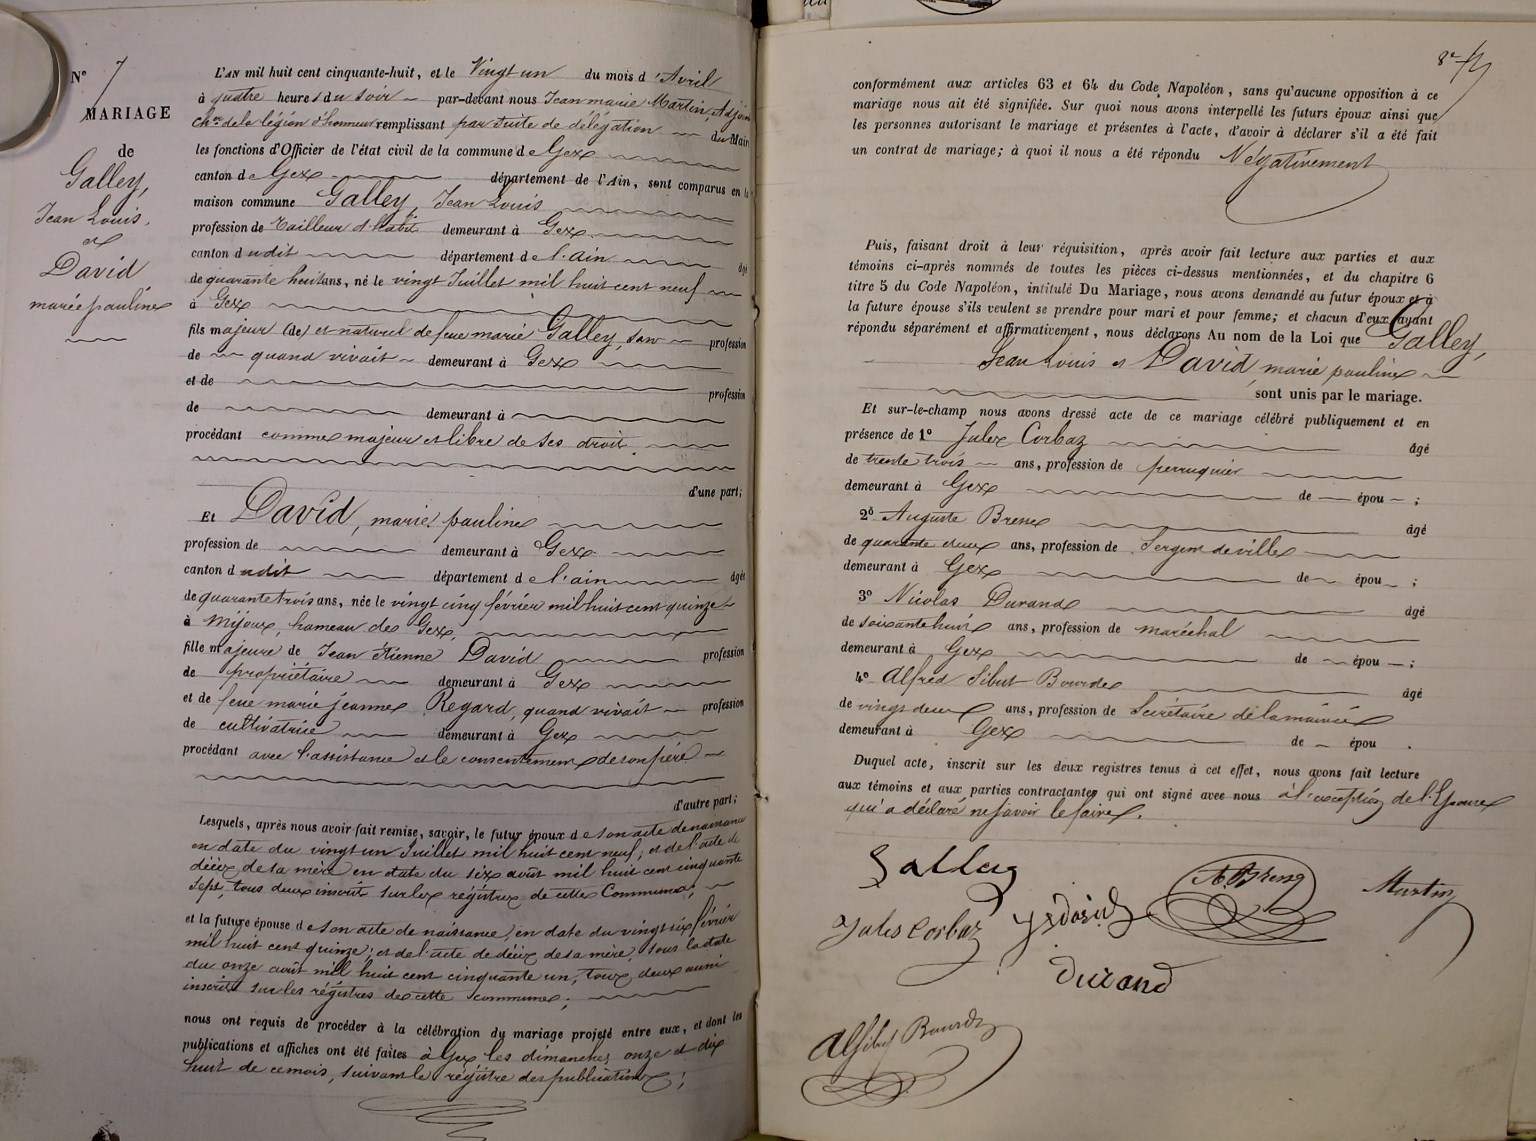 N° 7
MARIAGE
de
Galley,
Jean Louis.
et
David
marie pauline
L'AN mil huit cent cinquante-huit, et le Vingt un du mois d'Avril
à quatre heures du soir par-devant nous Jean marie Martin, Adjoint
Cher de la légion d'honneur remplissant par suite de délégation du Maire
les fonctions d'Officier de l'état civil de la commune de Gex
canton de Gex département de l'Ain, sont comparus en la
maison commune Galley, Jean Louis
profession de Tailleur d'habit demeurant à Gex
canton dudit département de l'ain âgé
de quarante huit ans, né le vingt Juillet mil huit cent neuf
à Gex
fils majeur (de) et naturel de feue marie Galley, san profession
de quand vivait demeurant à Gex
et de profession
de demeurant à
procédant comme majeur et libre de ses droit.
d'une part;
Et David, marie pauline
profession de demeurant à Gex
canton dudit département de l'ain âgée
de quarante trois ans, née le vingt cinq février mil huit cent quinze
à Mijoux, hameau de Gex,
fille majeure de Jean Etienne David profession
de propriétaire demeurant à Gex
et de feue marie jeanne Regard, quand vivait profession
de cultivatrice demeurant à Gex
procédant avec l'assistance et le consentement de son père
d'autre part;
Lesquels, après nous avoir fait remise, savoir, le futur époux de son acte de naissance
en date du vingt un Juillet mil huit cent neuf, et de l'acte de
décès de sa mère en date du six août mil huit cent cinquante
sept, tous deux inscrits sur les régistres de cette Commune;
et la future épouse de son acte de naissance, en date du vingt six février
mil huit cent quinze; et de l'acte de décès de sa mère, sous la date
du onze août mil huit cent cinquante un, tous deux aussi
inscrits sur les régistres de cette commune;
nous ont requis de procéder à la célébration du mariage projeté entre eux, et dont les
publications et affiches ont été faites à Gex les dimanches onze et dix
huit de ce mois, suivant le régistre des publications;
conformément aux articles 63 et 64 du Code Napoléon, sans qu'aucune opposition à ce
mariage nous ait été signifiée. Sur quoi nous avons interpellé les futurs époux ainsi que
les personnes autorisant le mariage et présentes à l'acte, d'avoir à déclarer s'il a été fait
un contrat de mariage; à quoi il nous a été répondu Négativement
Puis, faisant droit à leur réquisition, après avoir fait lecture aux parties et aux
témoins ci-après nommés de toutes les pièces ci-dessus mentionnées, et du chapitre 6
titre 5 du Code Napoléon, intitulé Du Mariage, nous avons demandé au futur époux et à
la future épouse s'ils veulent se prendre pour mari et pour femme; et chacun d'eux ayant
répondu séparément et affirmativement, nous déclarons Au nom de la Loi que Galley,
Jean Louis et David, marie pauline
sont unis par le mariage.
Et sur-le-champ nous avons dressé acte de ce mariage célébré publiquement et en
présence de 1° Jules Corbaz âgé
de trente trois ans, profession de perruquier
demeurant à Gex de épou ;
2° Auguste Brene âgé
de quarante deux ans, profession de Sergent de ville
demeurant à Gex de épou ;
3° Nicolas Durand âgé
de soixante huit ans, profession de maréchal
demeurant à Gex de épou ;
4° Alfred Sibut Bourde âgé
de vingt deux ans, profession de Secrétaire de la mairie
demeurant à Gex de épou .
Duquel acte, inscrit sur les deux registres tenus à cet effet, nous avons fait lecture
aux témoins et aux parties contractantes qui ont signé avec nous à l'exception de l'Epouse
qui a déclaré ne savoir le faire.
Galley
ABrene
Martin
Jules Corbaz
Durand
ASibut Bourde